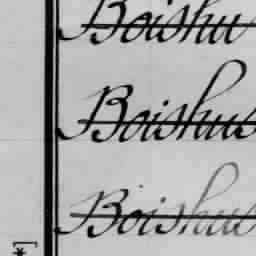 Boishu
Boishue
Boishue
*]